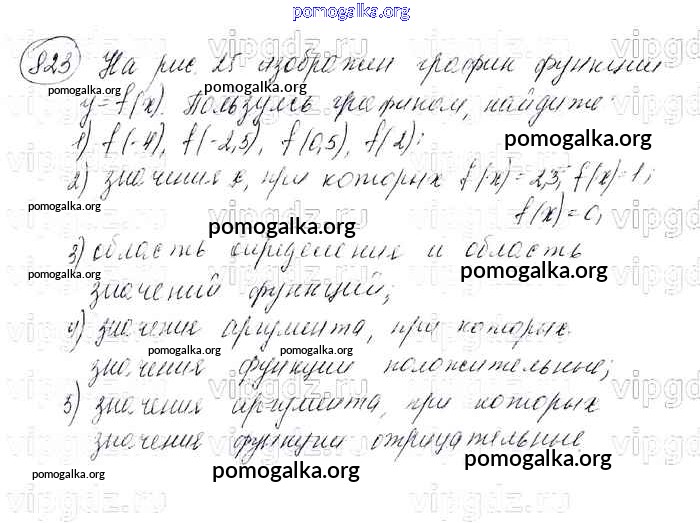 pomogalka.org
823 На рис. 25 изображен график функции
y = f(x). Пользуясь графиком, найдите
pomogalka.org
1) f(-4), f(-2,5), f(0,5), f(2);
pomogalka.org
2) значения x, при которых f(x)=2,5, f(x)=1;
pomogalka.org
f(x)=0;
pomogalka.org
3) область определения и область
pomogalka.org pomogalka.org
значений функций;
4) значение аргумента, при которых
pomogalka.org pomogalka.org
значения функции положительные;
5) значения аргумента, при которых
pomogalka.org
значение функции отрицательные.
pomogalka.org pomogalka.org pomogalka.org
vipgdz.ru